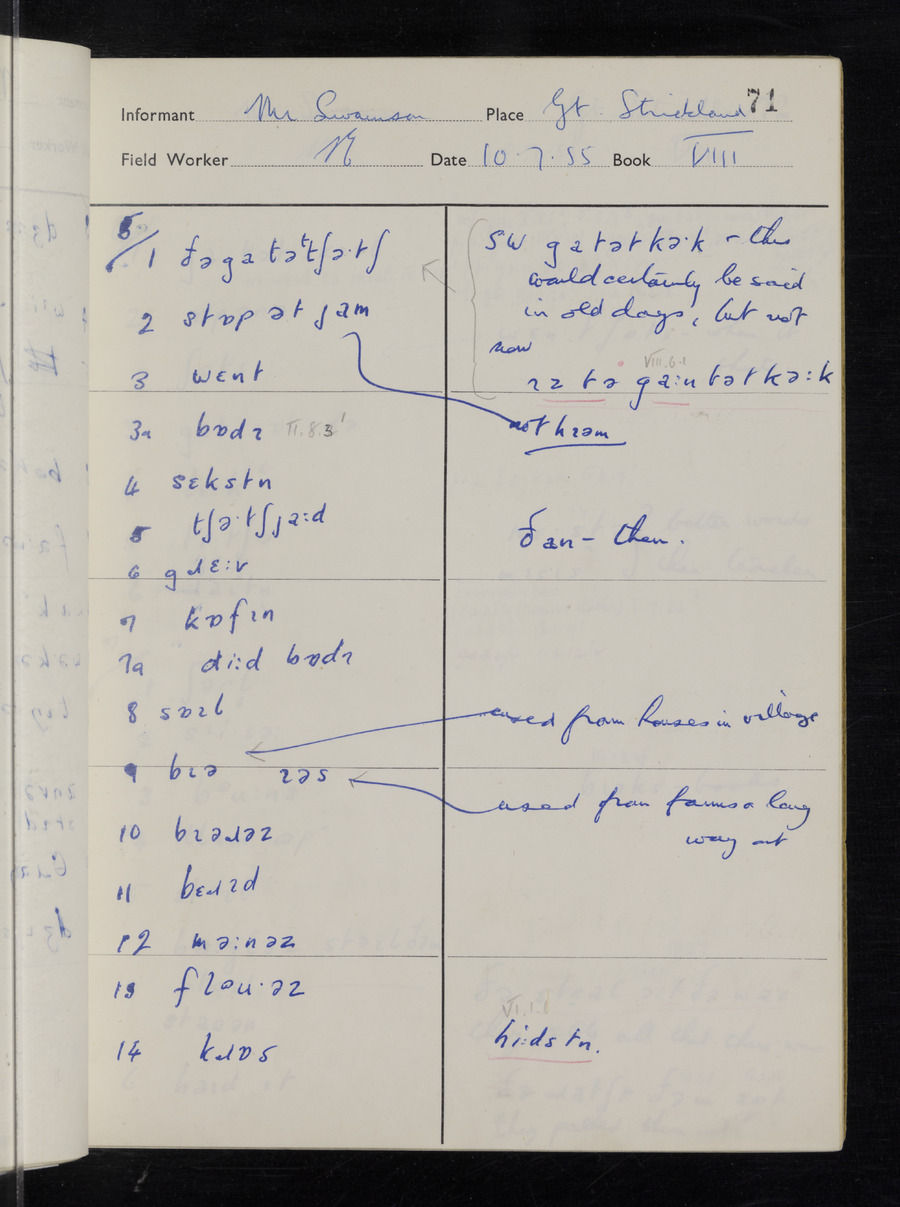 71
Informant Mr Swainson Place Gt. Strickland
Field Worker Date 10.7.55 Book VIII
5/1 ðə ga tətʃə·tʃ
2 stɒp ət jam
3 wɛnt
3a bɒdɪ II.8.3
4 sɛkstn
5 tʃə·tʃja:d
6 gɹɛ:v
7 kɒfɪn
7a di:d bɒdɪ
8 sɒɪl
9 bɪə ɪəs
10 bɪəɹəz
11 bɛɹɪd
12 mə:nəz
13 flaʊ·əz
14 kɹɒs
SW ga tət kə·k – this
would certainly be said
in old days, but not
now
VIII.6.1
ɪz tə ga:n tət kə:k
not hɪəm
ðan – then.
used from houses in village
used from farms a long
way out
VI.1.1
hi:dstn.